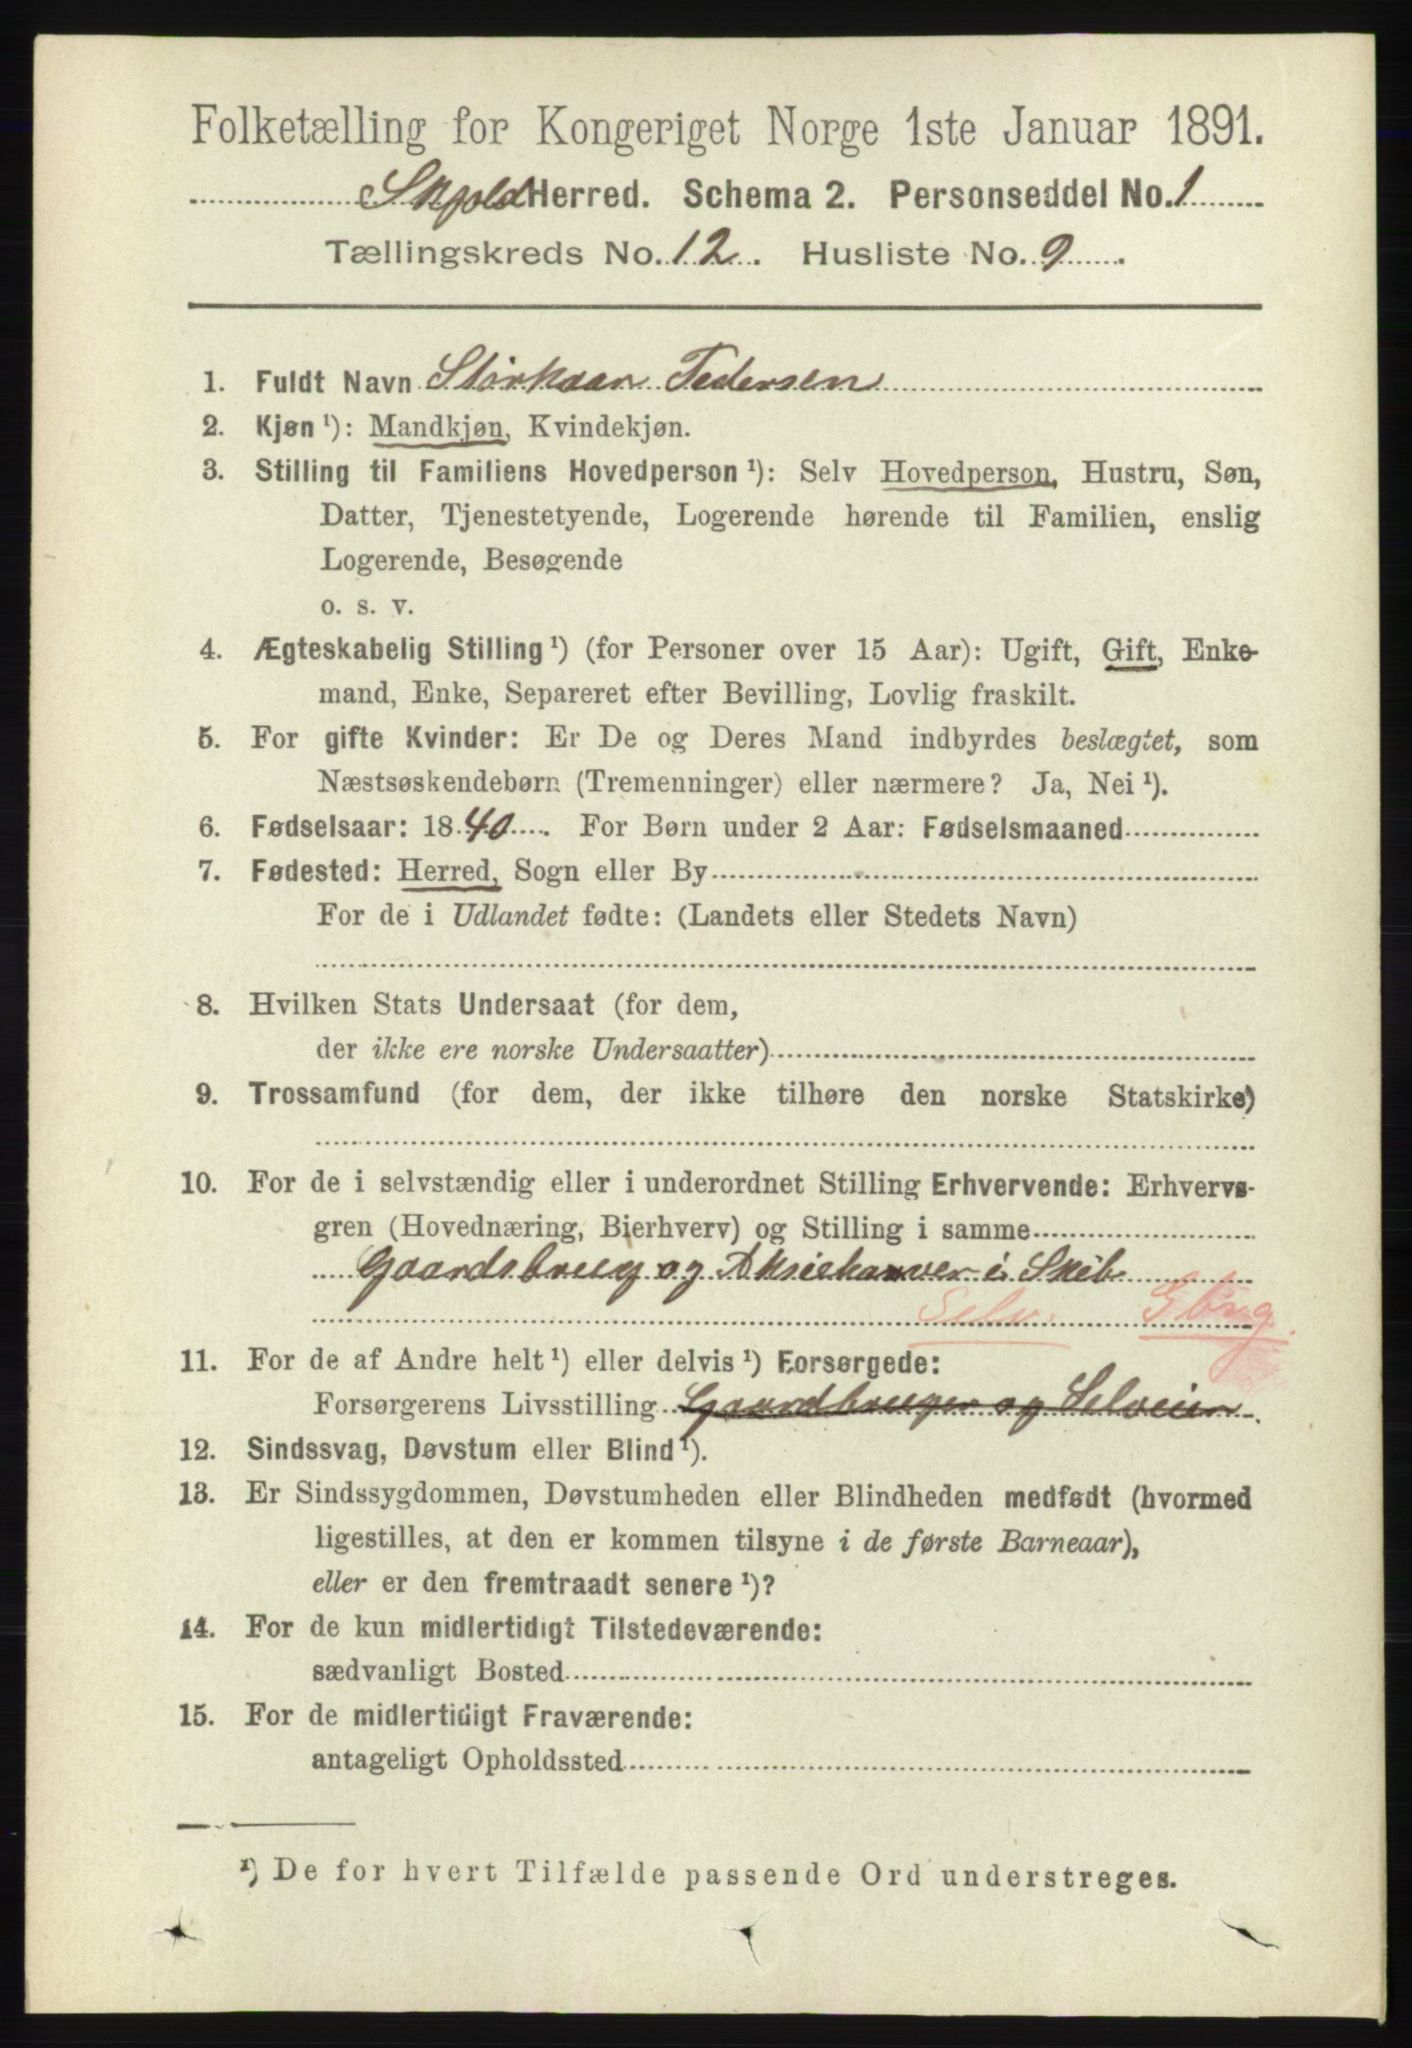 Folketælling for Kongeriget Norge 1ste Januar 1891.
Skjold Herred. Schema 2. Personseddel No. 1
Tællingskreds No. 12. Husliste No. 9
1. Fuldt Navn Störkaar Pedersen
2. Kjøn ¹): Mandkjøn, Kvindekjøn.
3. Stilling til Familiens Hovedperson ¹): Selv Hovedperson, Hustru, Søn,
Datter, Tjenestetyende, Logerende hørende til Familien, enslig
Logerende, Besøgende
o. s. v.
4. Ægteskabelig Stilling ¹) (for Personer over 15 Aar): Ugift, Gift, Enke-
mand, Enke, Separeret efter Bevilling, Lovlig fraskilt.
5. For gifte Kvinder: Er De og Deres Mand indbyrdes beslægtet, som
Næstsøskendebørn (Tremenninger) eller nærmere? Ja, Nei ¹).
6. Fødselsaar: 1840. For Børn under 2 Aar: Fødselsmaaned
7. Fødested: Herred, Sogn eller By
For de i Udlandet fødte: (Landets eller Stedets Navn)
8. Hvilken Stats Undersaat (for dem,
der ikke ere norske Undersaatter)
9. Trossamfund (for dem, der ikke tilhøre den norske Statskirke)
10. For de i selvstændig eller i underordnet Stilling Erhvervende: Erhvervs-
gren (Hovednæring, Bierhverv) og Stilling i samme
Gaardsbrug og Aksiehaver i Skib
Selv. Gbrg.
11. For de af Andre helt ¹) eller delvis ¹) Forsørgede:
Forsørgerens Livsstilling Gaardbruger og Selveier.
12. Sindssvag, Døvstum eller Blind ¹).
13. Er Sindssygdommen, Døvstumheden eller Blindheden medfødt (hvormed
ligestilles, at den er kommen tilsyne i de første Barneaar),
eller er den fremtraadt senere ¹)?
14. For de kun midlertidigt Tilstedeværende:
sædvanligt Bosted
15. For de midlertidigt Fraværende:
antageligt Opholdssted
¹) De for hvert Tilfælde passende Ord understreges.